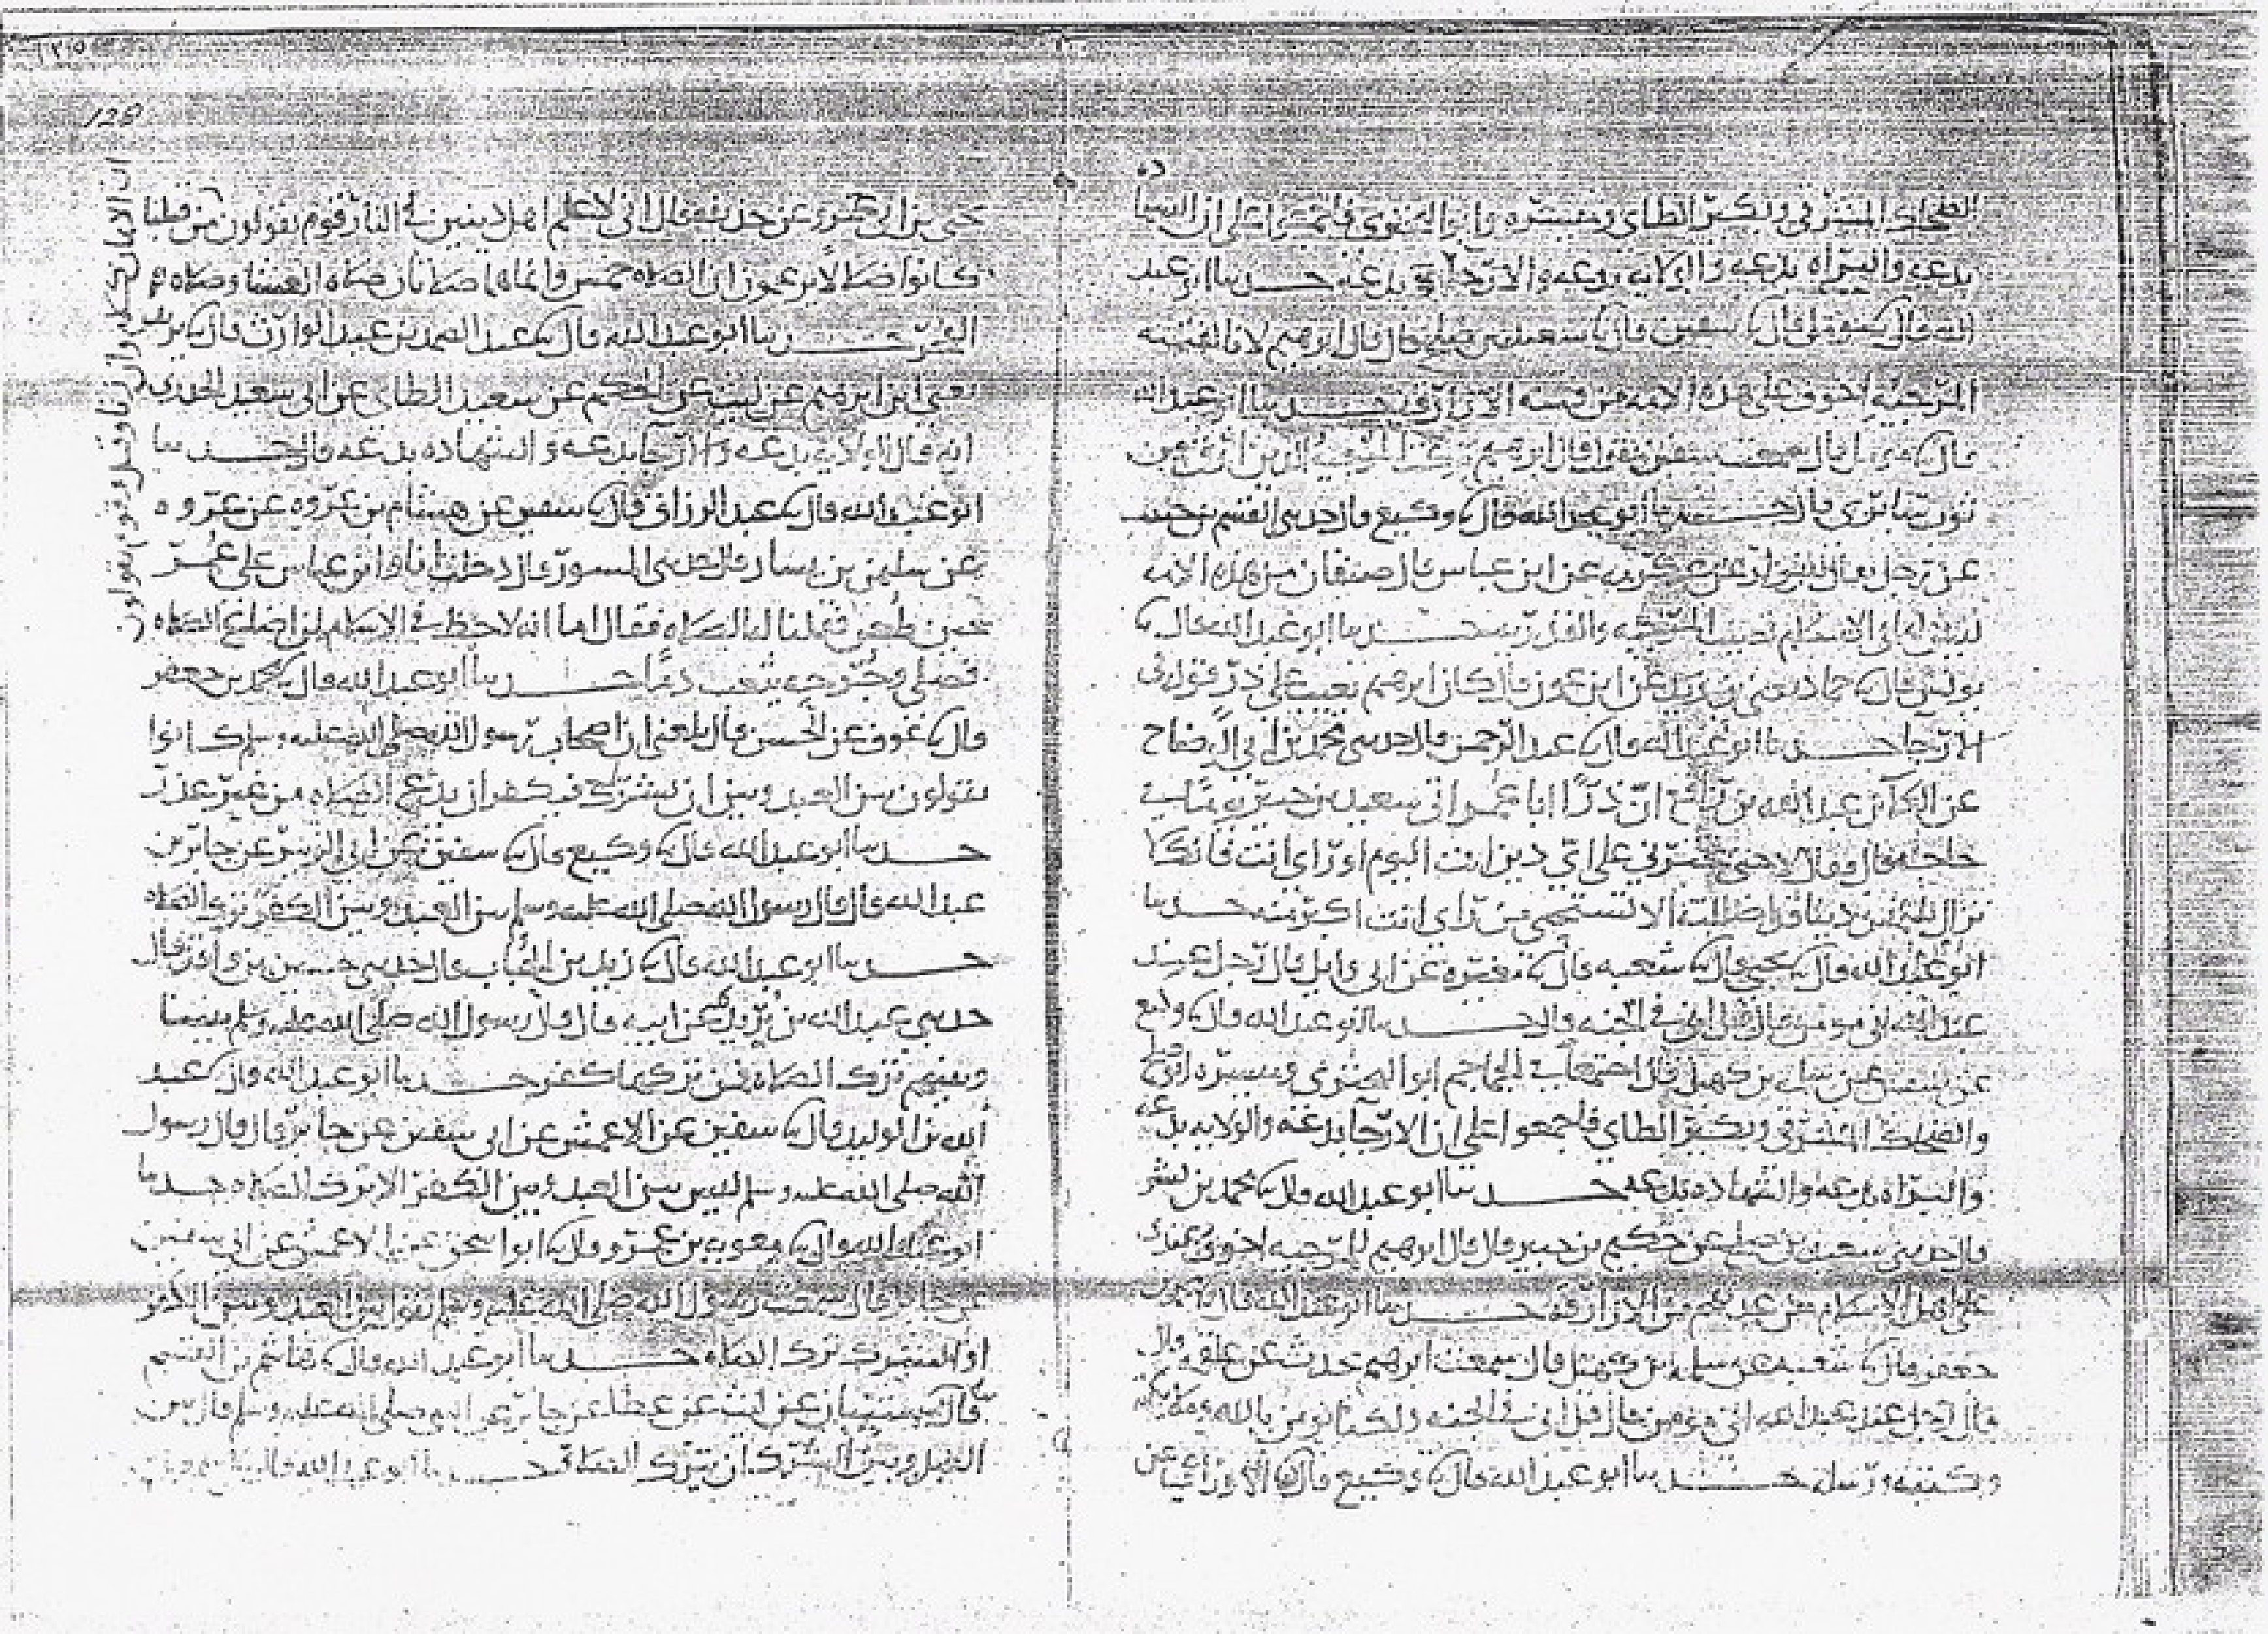 الضحاك المشرقي وبكير الطاي وميسره وابو البختري فاجمعوا على ان الشها
دة
بدعه والبراه بدعه والولايه بدعه والارجا بدعه حدثنا ابو عبد
الله قال سفين قال سعيد بن صلح قال قال ابرهيم لانا لفتنه
المرجيه اخوف على هذه الامه من فتنه الازارقه حدثنا ابو عبد الله
قال مومل قال سمعت سفين يقول قال ابرهيم تركت المرجيه الدين ارق من
ثوب سابري قال حدثنا ابو عبد الله قال وكيع قال حدثني القسم بن حبيب
عن رجل يقال له نزار عن عكرمه عن ابن عباس قال صنفان من هذه الامه
ليس لهما في الاسلام نصيب المرجيه والقدريه حدثنا ابو عبد الله قال
يونس قال حماد يعني بن زيد عن ابن عون قال كان ابرهيم يعيب على ذر قوله في
الارجا حدثنا ابو عبد الله قال عبد الرحمن قال حدثني محمد بن ابي الوضاح
عن العلا بن عبد الله بن رافع ان ذرا ابا عمر اتى سعيد بن جبير يوما في
حاجه قال فقال لا حتى تخبرني على اي دين انت اليوم او راي انت فانك لا
تزال تلتمس دينا قد اضللته الا تستحيي من راي انت اكبر منه حدثنا
ابو عبد الله قال يحيى قال شعبه قال مغيره عن ابي وايل قال رجل عند
عبد الله اني مومن قال قل اني في الجنه قال حدثنا ابو عبد الله قال وكيع
عن سفين عن سلمه بن كهيل قال اجتمعنا في الجماجم ابو البختري وميسره ابو صلح
والضحاك المشرقي وبكير الطاي فاجمعوا على ان الارجا بدعه والولايه بدعه
والبراه بدعه والشهاده بدعه حدثنا ابو عبد الله قال محمد بن بشر
قال حدثني سعيد بن صلح عن حكيم بن جبير قال قال ابرهيم للمرجيه اخوف عندي
على اهل الاسلام من عدتهم من الازارقه حدثنا ابو عبد الله قال محمد بن
جعفر قال شعبه عن سلمه بن كهيل قال سمعت ابرهيم يحدث عن علقمه قال
قال رجل عند عبد الله اني مومن قال قل اني في الجنه ولكنا نومن بالله وملايكته
وكتبه ورسله حدثنا ابو عبد الله قال وكيع قال الاوزاعي عن
١٢٥
128
يحيى بن ابي عمرو عن حذيفه قال اني لاعلم اهل دينين في النار قوم يقولون من قبلنا
كانوا ضلالا يزعمون ان الصلاه خمس وانما هما صلاتان صلاه العشا وصلاه
الفجر حدثنا ابو عبد الله قال عبد الصمد بن عبد الوارث قال
يعني ابن ابرهيم عن ليث عن الحكم عن سعيد الطاي عن ابي سعيد الخدري
انه قال الولايه بدعه والارجا بدعه والشهاده بدعه قال حدثنا
ابو عبد الله قال عبد الرزاق قال سفين عن هشام بن عروه عن عروه
عن سليمن بن يسار قال حدثني المسور قال دخلت انا وابن عباس على عمر
حين طعن فقلنا له الصلاه فقال اما انه لا حظ في الاسلام لمن اضاع الصلاه
فصلى وجرحه يثعب دما حدثنا ابو عبد الله قال محمد بن جعفر
قال عوف عن الحسن قال بلغني ان اصحاب رسول الله صلى الله عليه وسلم كانوا
يقولون بين العبد وبين ان يشرك فيكفر ان يدع الصلاه من غير عذر
حدثنا ابو عبد الله قال وكيع قال سفين عن ابي الزبير عن جابر بن
عبد الله قال قال رسول الله صلى الله عليه وسلم بين العبد وبين الكفر ترك الصلاه
حدثنا ابو عبد الله قال زيد بن الحباب قال حدثني حسين بن واقد قال
حدثني عبد الله بن بريده عن ابيه قال قال رسول الله صلى الله عليه وسلم بيننا
وبينهم ترك الصلاه فمن تركها كفر حدثنا ابو عبد الله قال عبد
الله بن الوليد قال سفين عن الاعمش عن ابي سفين عن جابر قال قال رسول
الله صلى الله عليه وسلم ليس بين العبد وبين الكفر الا ترك الصلاه حدثنا
ابو عبد الله قال معويه بن عمرو قال ابو اسحق عن الاعمش عن ابي سفين
عن جابر قال سمعت رسول الله صلى الله عليه وسلم يقول بين العبد وبين الكفر
او الشرك ترك الصلاه حدثنا ابو عبد الله قال هاشم بن القسم
قال شيبان عن ليث عن عطا عن جابر عن النبي صلى الله عليه وسلم قال بين
العبد وبين الشرك ان يترك الصلاه حدثنا ابو عبد الله قال
ان الايمان كلام وان زنا وقتل وقوم يقولون